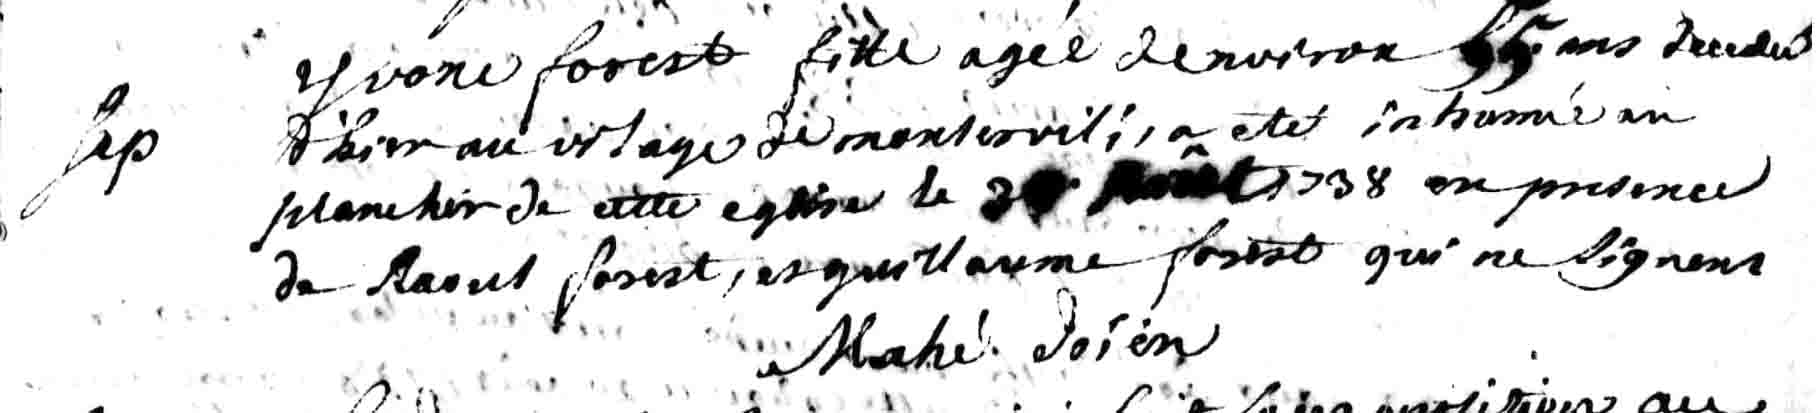 Yvone forest fille agée denviron 55 ans decedeé
Sep d'hier au vilage de montervili, a eté inhumé au
plancher de cette eglise le Août 1738 en presence
de Raoul forest, et guillaume forest qui ne signent
Mahé doien